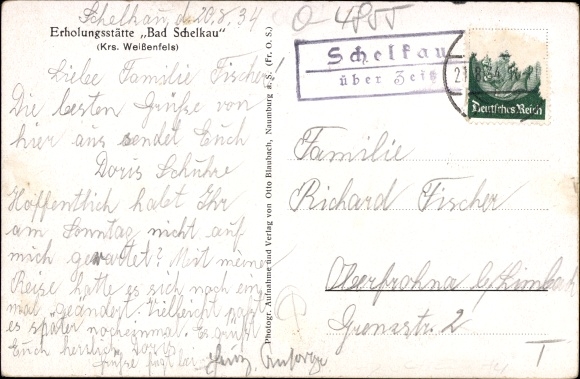 Schelkau, d. 20.8.34
Erholungsstätte „Bad Schelkau"
(Krs. Weißenfels)
Liebe Familie Fischer!
Die besten Grüße von
hier aus sendet Euch
Doris Schuhre
Hoffentlich habt Ihr
am Sonntag nicht auf
mich gewartet? Mit meiner
Reise hatte es sich noch ein
mal geändert. Vielleicht paßt
es später nocheinmal. Es grüßt
Euch herzlich Doris
Photogr. Aufnahme und Verlag von Otto Blaubach, Naumburg a. S. (Fr. O. S.)
O 4855
Schelkau
über Zeitz
21.8.34
Deutsches Reich
Familie
Richard Fischer
Oberfrohna b/Limbach
Grenzstr. 2
T